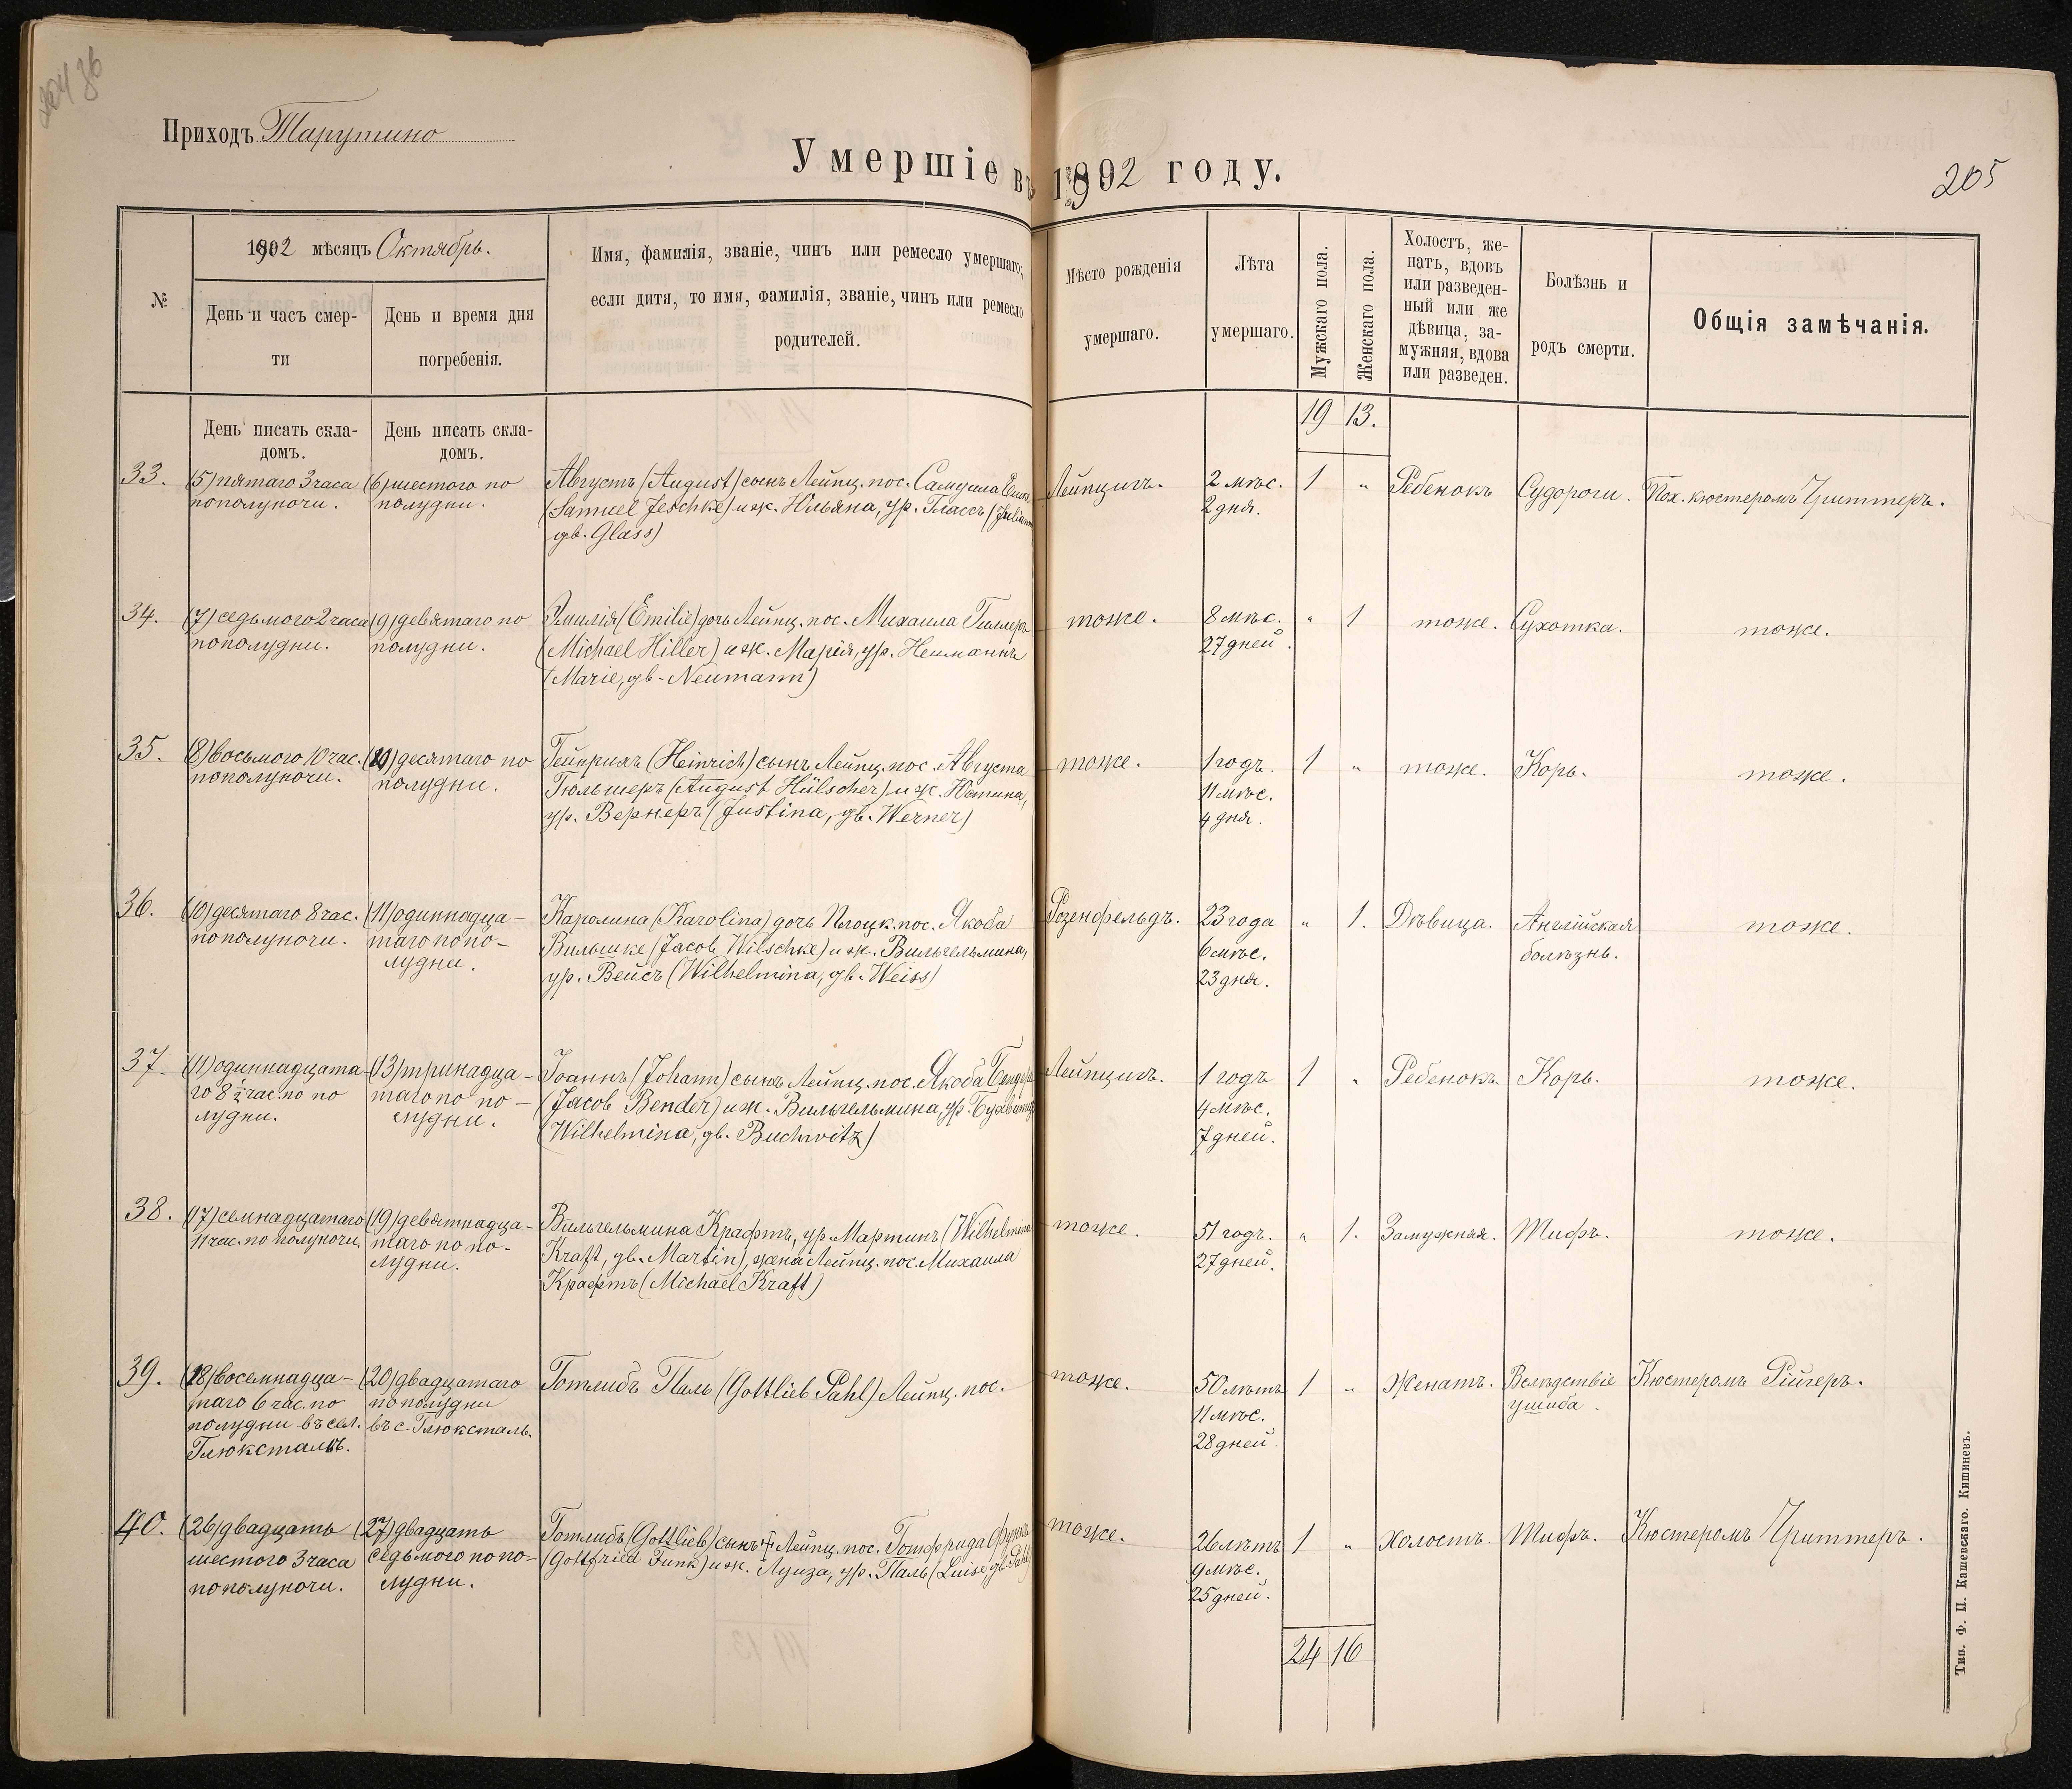 204 36
Приходъ Тарутино
Умершіе въ 1902 году.
205
№
1902 мѣсяцъ Октябрь.
День и часъ смер-
ти
День и время дня
погребенія.
Имя, фамилія, званіе, чинъ или ремесло умершаго;
если дитя, то имя, фамилія, званіе, чинъ или ремесло
родителей.
Мѣсто рожденія
умершаго.
Лѣта
умершаго.
Мужскаго пола.
Женскаго пола.
Холостъ, же-
натъ, вдовъ
или разведен-
ный или же
дѣвица, за-
мужняя, вдова
или разведен.
Болѣзнь и
родъ смерти.
Общія замѣчанія.
День писать скла-
домъ.
День писать скла-
домъ.
19 13.
33.
(5) пятаго 3 часа
пополуночи.
(6) шестого по
полудни.
Августъ (August) сынъ Лейпц. пос. Самуила
(Samuel Jeschke) и ж. Юльяна, ур. Глассъ (Juliana
gb. Glass)
Лейпцигъ.
2 мѣс.
2 дня.
1 "
Ребенокъ
Судороги.
Пох. кюстеромъ Гриттеръ.
34.
(7) седьмого 2 часа
пополудни.
(9) девятаго по
полудни.
Эмилія (Emilie) дочь Лейпц. пос. Михаила Гиллеръ
(Michael Hiller) и ж. Марія, ур. Нейманнъ
(Marie, gb. Neumann)
тоже.
8 мѣс.
27 дней.
" 1
тоже.
Сухотка.
тоже.
35.
(8) восьмого 10 час.
пополуночи.
(10) десятаго по
полудни.
Гейнрихъ (Heinrich) сынъ Лейпц. пос. Августа
Гюльшеръ (August Hülscher) и ж. Юстина,
ур. Вернеръ (Justina, gb. Werner)
тоже.
1 годъ.
11 мѣс.
4 дня.
1 "
тоже.
Корь.
тоже.
36.
(10) десятаго 8 час.
пополуночи.
(11) одиннадца-
таго по по-
лудни.
Каролина (Karolina) дочь Плоцк. пос. Якоба
Вильшке (Jacob Wilschke) и ж. Вильгельмина,
ур. Вейсъ (Wilhelmina, gb. Weiss)
Розенфельдъ.
23 года
6 мѣс.
23 дня.
" 1.
Дѣвица.
Англійская
болѣзнь.
тоже.
37.
(11) одиннадцата-
го 8 ½ час. по по
лудни.
(13) тринадца-
таго по по-
лудни.
Іоаннъ (Johann) сынъ Лейпц. пос. Якоба Бендеръ
(Jacob Bender) и ж. Вильгельмина, ур. Бухвитцъ
(Wilhelmina, gb. Buchwitz)
Лейпцигъ.
1 годъ
4 мѣс.
7 дней.
1 "
Ребенокъ.
Корь.
тоже.
38.
(17) семнадцатаго
11 час. по полуночи.
(19) девятнадца-
таго по по-
лудни.
Вильгельмина Крафтъ, ур. Мартинъ (Wilhelmina
Kraft, gb. Martin), жена Лейпц. пос. Михаила
Крафтъ (Michael Kraft)
тоже.
51 годъ.
27 дней.
" 1.
Замужная.
Тифъ.
тоже.
39.
(18) восемнадца-
таго 6 час. по
полудни въ сел.
Глюксталь.
(20) двадцатаго
по полудни
въ с. Глюксталь.
Готлибъ Паль (Gottlieb Pahl) Лейпц. пос.
тоже.
50 лѣтъ
11 мѣс.
28 дней.
1 "
Женатъ.
Вслѣдствіе
ушиба.
Кюстеромъ Рійгеръ.
40.
(26) двадцать
шестого 3 часа
пополуночи.
(27) двадцать
седьмого по по-
лудни.
Готлибъ (Gottlieb) сынъ + Лейпц. пос. Готфрида Функъ
(Gottfried Funk) и ж. Луиза, ур. Паль (Luise gb. Pahl)
тоже.
26 лѣтъ
9 мѣс.
25 дней.
1 "
Холостъ.
Тифъ.
Кюстеромъ Гриттеръ.
24 16
Тип. Ф. П. Кашевскаго. Кишиневъ.